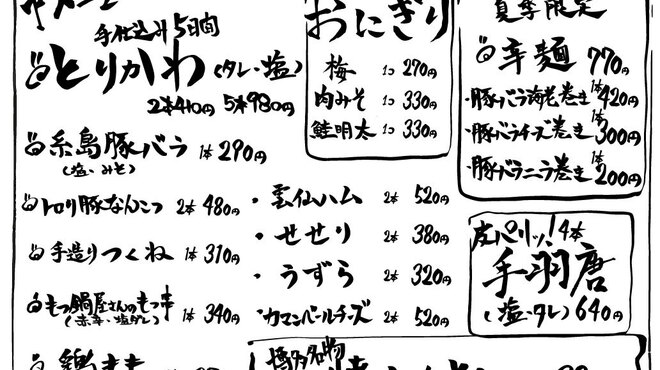 手仕込み5日間
とりかわ(タレ・塩)
2本410円 5本980円
糸島豚バラ 1本 290円
(塩・みそ)
トロリ豚なんこつ 2本 480円
手造りつくね 1本 310円
もつ鍋屋さんのもつ串 1本 340円
(赤辛・塩タレ)
・雲仙ハム 2本 520円
・せせり 2本 380円
・うずら 2本 320円
・カマンベールチーズ 2本 520円
おにぎり
梅 1コ 270円
肉みそ 1コ 330円
鮭明太 1コ 330円
夏季限定
辛麺 770円
・豚バラ海老巻き 1本 420円
・豚バラチーズ巻き 1本 300円
・豚バラニラ巻き 1本 200円
皮パリッ! 4本
手羽唐
(塩・タレ) 640円
博多名物